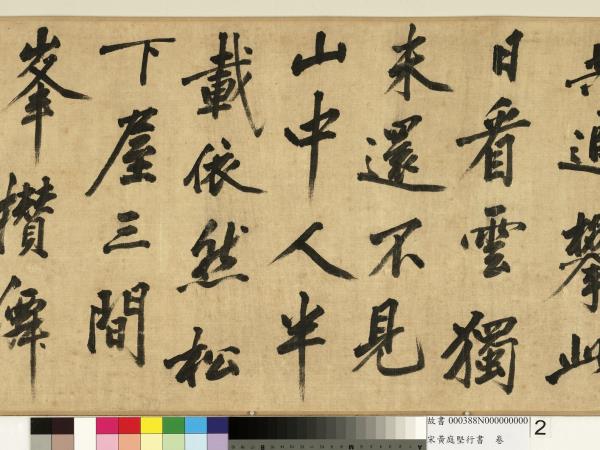 共追攀此
日看雲獨
未還不見
山中人半
載依然松
下屋三間
峯攢舞
故書 000388N000000000
宋黃庭堅行書　卷
2